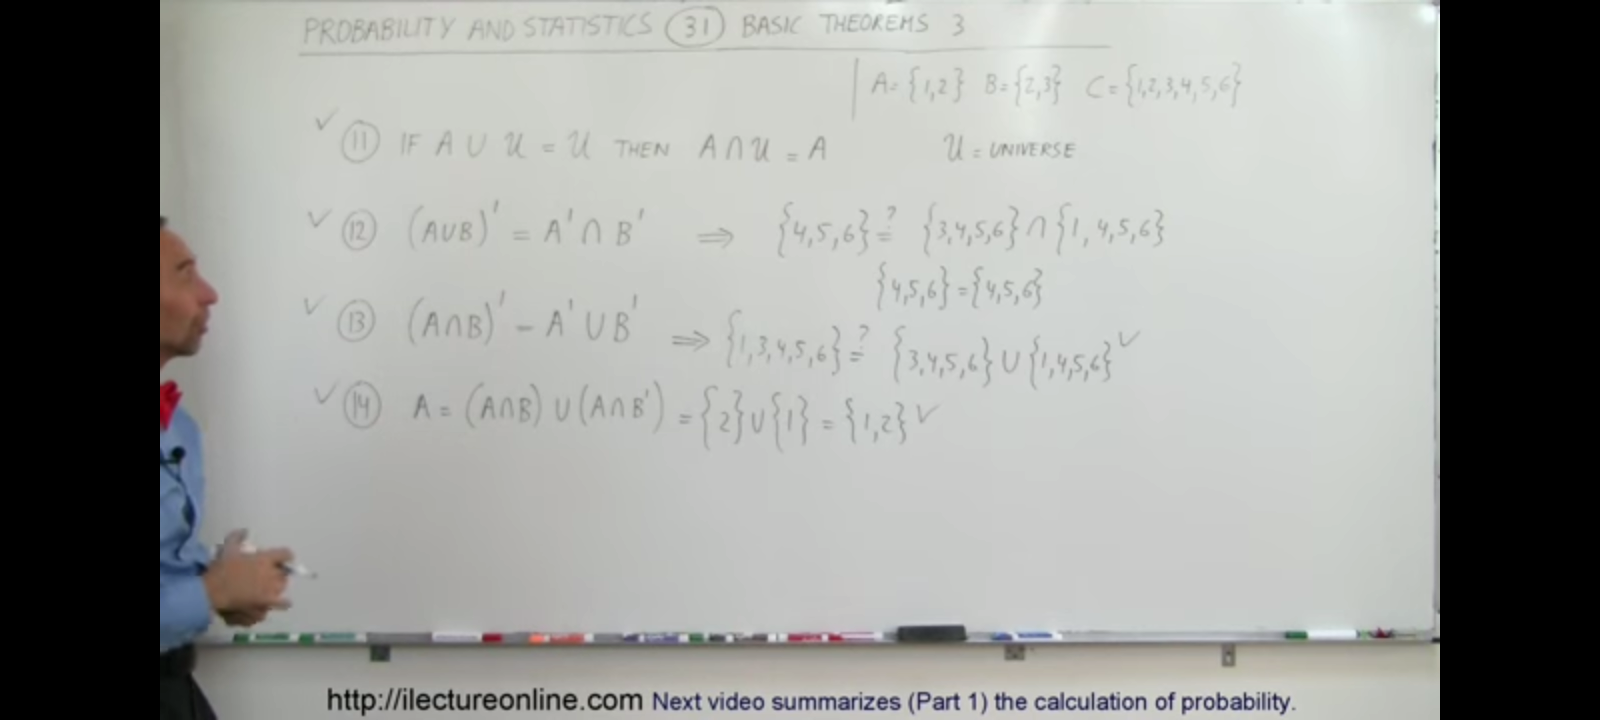 PROBABILITY AND STATISTICS (31) BASIC THEOREMS 3
A = {1,2} B = {2,3} C = {1,2,3,4,5,6}
✓ (11) IF A ∪ U = U THEN A ∩ U = A U = UNIVERSE
✓ (12) (A∪B)' = A' ∩ B' ⇒ {4,5,6} ?= {3,4,5,6} ∩ {1,4,5,6}
{4,5,6} = {4,5,6}
✓ (13) (A∩B)' – A' ∪ B' ⇒ {1,3,4,5,6} ?= {3,4,5,6} ∪ {1,4,5,6} ✓
✓ (14) A = (A∩B) ∪ (A∩B') = {2} ∪ {1} = {1,2} ✓
http://ilectureonline.com Next video summarizes (Part 1) the calculation of probability.